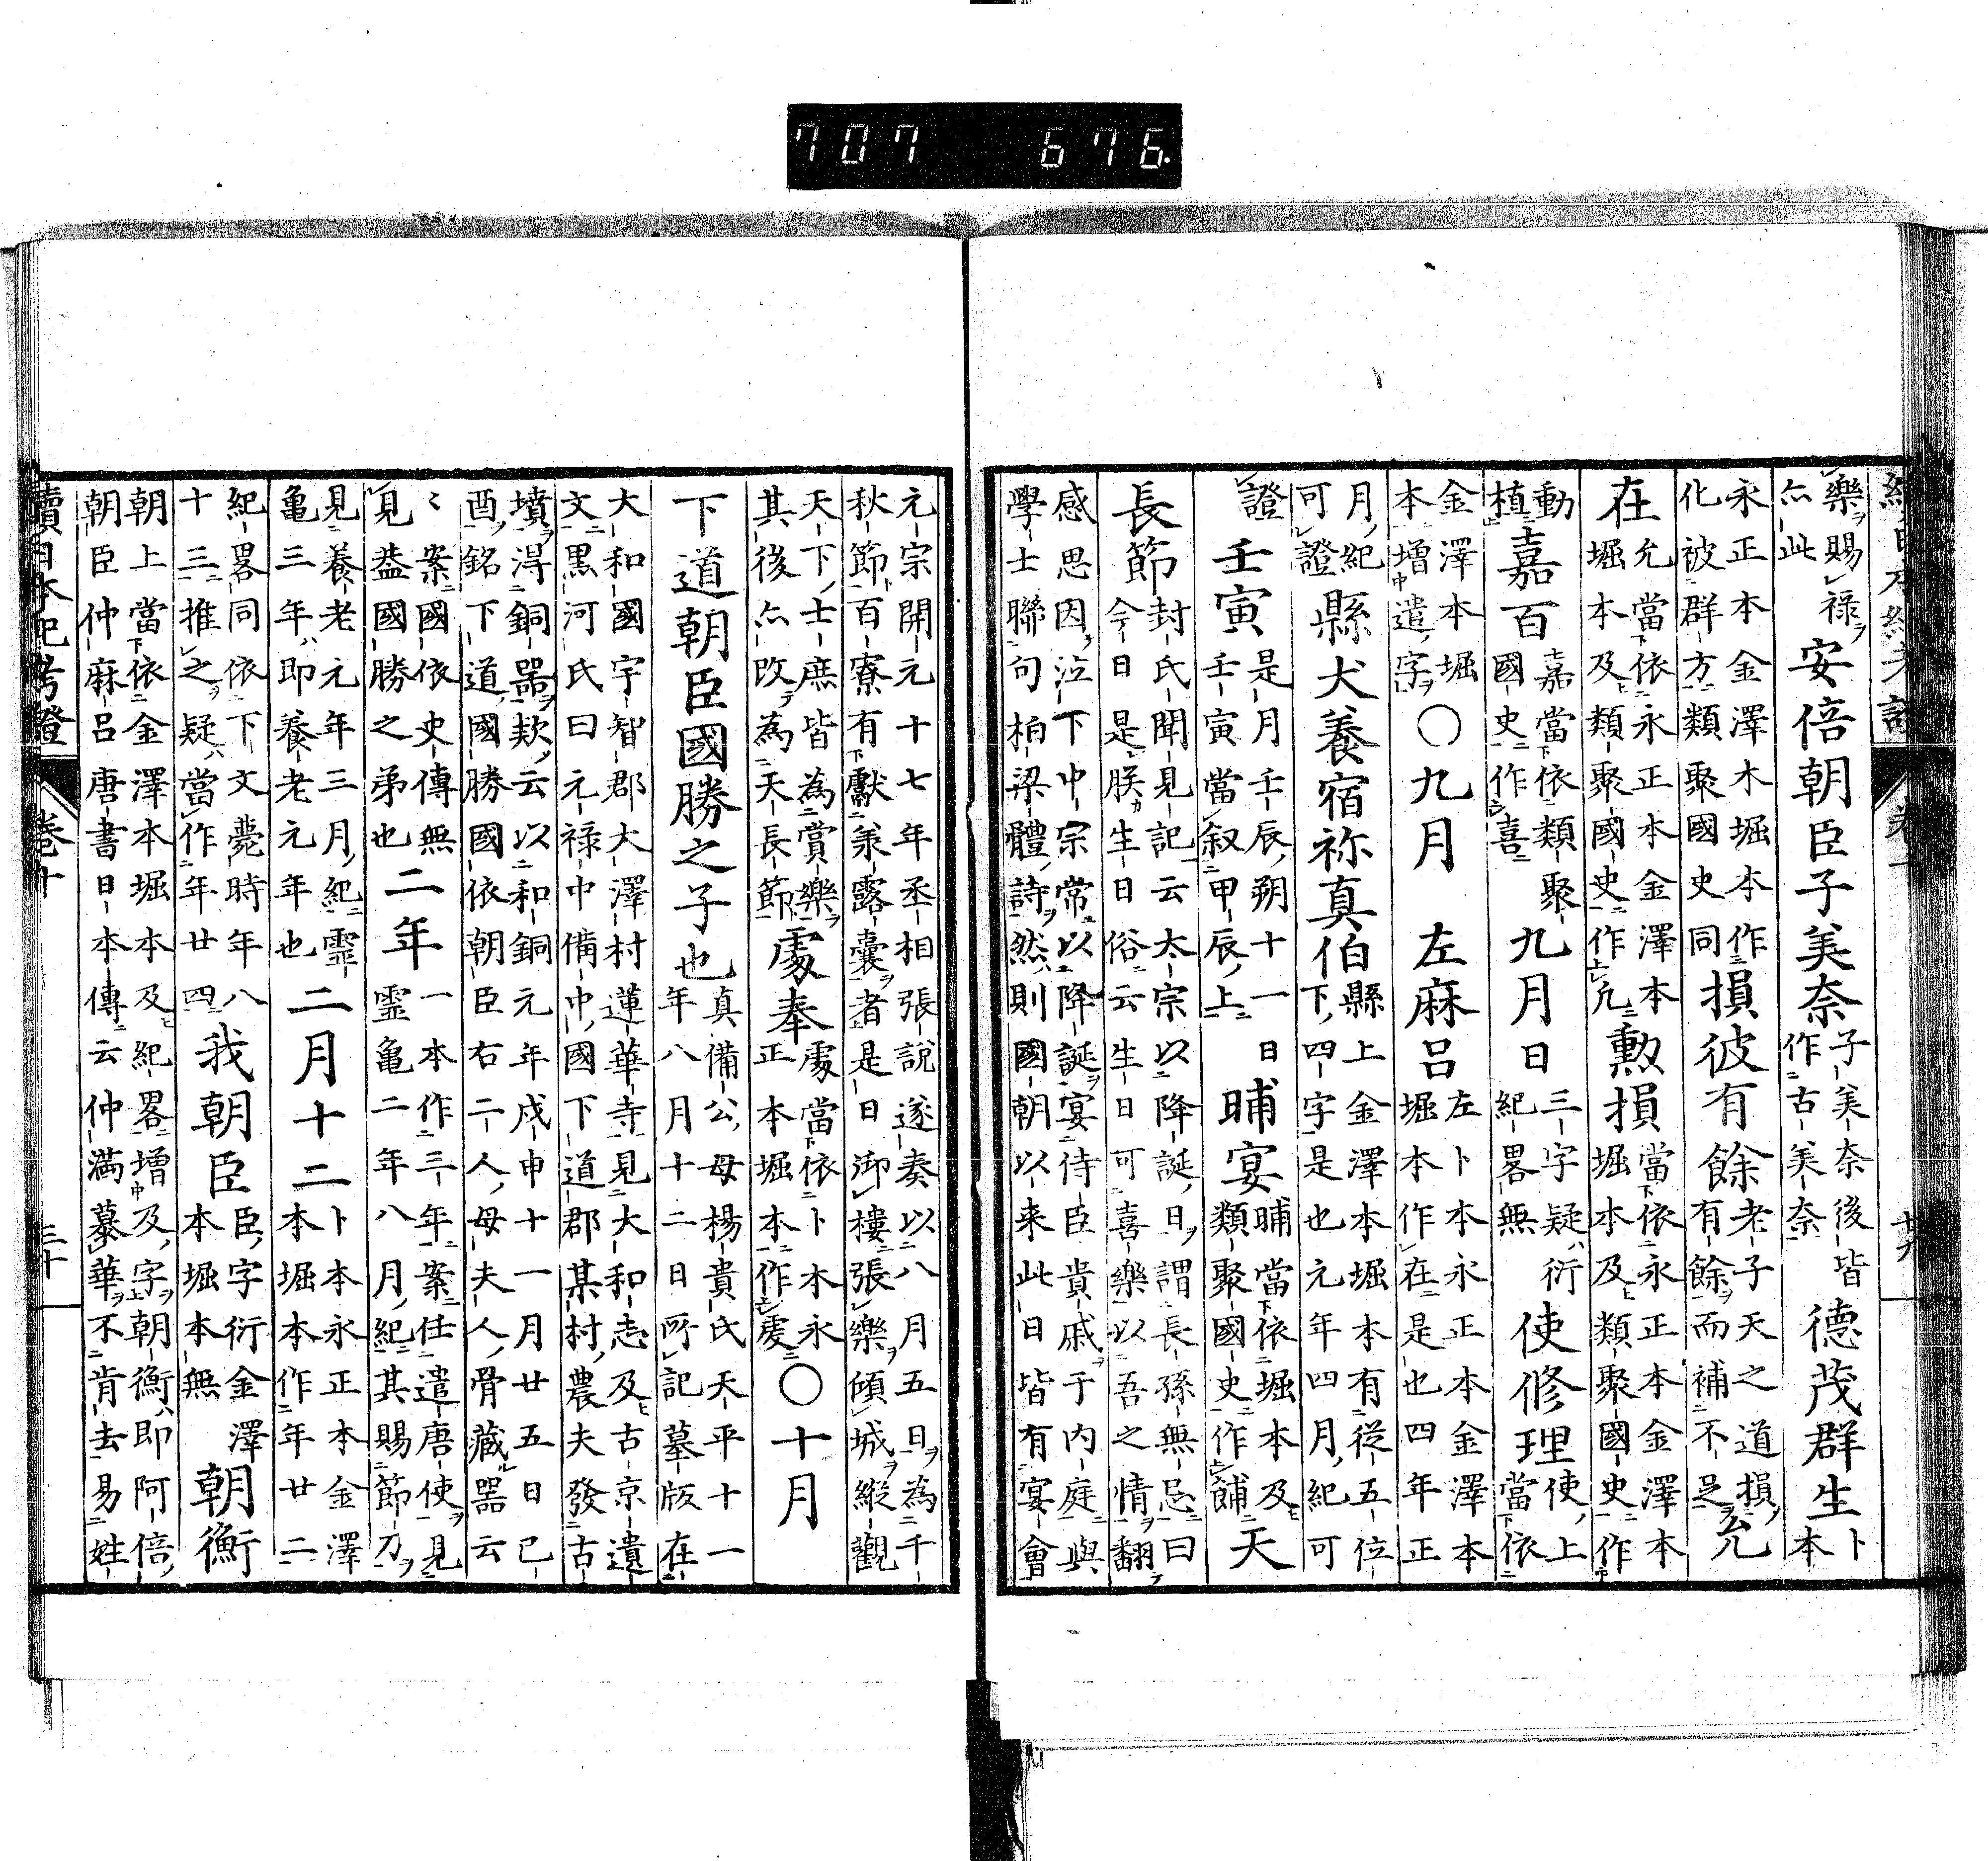 續日本紀考證　卷十　廿九
樂賜祿亦此安倍朝臣子美奈子美奈後皆作古美奈德茂群生卜本
永正本金澤本堀本作化被群方類聚國史同損彼有餘老子天之道損有餘而補不足允
在允當依永正本金澤本堀本及類聚國史作凢勲損當依永正本金澤本堀本及類聚國史作
動植嘉百嘉當依類聚國史作喜九月日三字疑衍紀畧無使修理使上當依
金澤本堀本增遣字〇九月　左麻呂左卜本永正本金澤本堀本作在是也四年正
月紀可證縣犬養宿祢真伯縣上金澤本堀本有從五位下四字是也元年四月紀可
證壬寅是月壬辰朔十一日壬寅當叙甲辰上晡宴晡當依堀本及類聚國史作餔天
長節封氏聞見記云太宗以降誕日謂長孫無忌曰今日是朕生日俗云生日可喜樂以吾之情翻
感思因泣下中宗常以降誕宴侍臣貴戚于內庭與學士聯句柏梁體詩然則國朝以来此日皆有宴會
元宗開元十七年丞相張說遂奏以八月五日為千秋節百寮有獻承露囊者是日御樓張樂傾城縱觀
天下士庶皆為賞樂其後亦改為天長節䖏奉䖏當依卜本永正本堀本作䖍〇十月
下道朝臣國勝之子也真備公母楊貴氏天平十一年八月十二日所記墓版在
大和國宇智郡大澤村蓮華寺見大和志及古京遺文黒河氏曰元禄中備中國下道郡某村農夫發古
墳淂銅噐欵云以和銅元年戊申十一月廿五日己酉銘下道國勝國依朝臣右二人母夫人骨藏噐云
〻案國依史傳無見葢國勝之弟也二年一本作三年案任遣唐使見靈亀二年八月紀其賜節刀
見養老元年三月紀靈亀三年即養老元年也二月十二卜本永正本金澤本堀本作年廿二
紀畧同依下文薨時年八十三推之疑當作年廿四我朝臣臣字衍金澤本堀本無朝衡
朝上當依金澤本堀本及紀畧增及字朝衡即阿倍朝臣仲麻呂唐書日本傳云仲滿慕華不肯去易姓
續日本紀考證　卷十　三十
707 676.